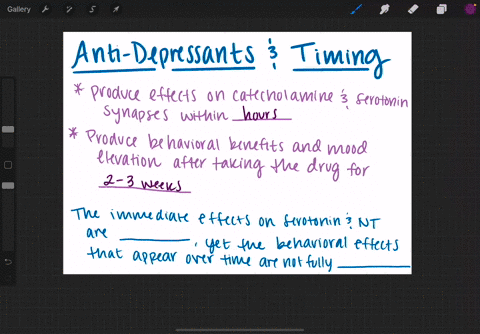 Gallery
Anti-Depressants & Timing
* Produce effects on catecholamine & serotonin
synapses within hours
* Produce behavioral benefits and mood
elevation after taking the drug for
2-3 weeks
The immediate effects on serotonin & NT
are ________, yet the behavioral effects
that appear over time are not fully ________